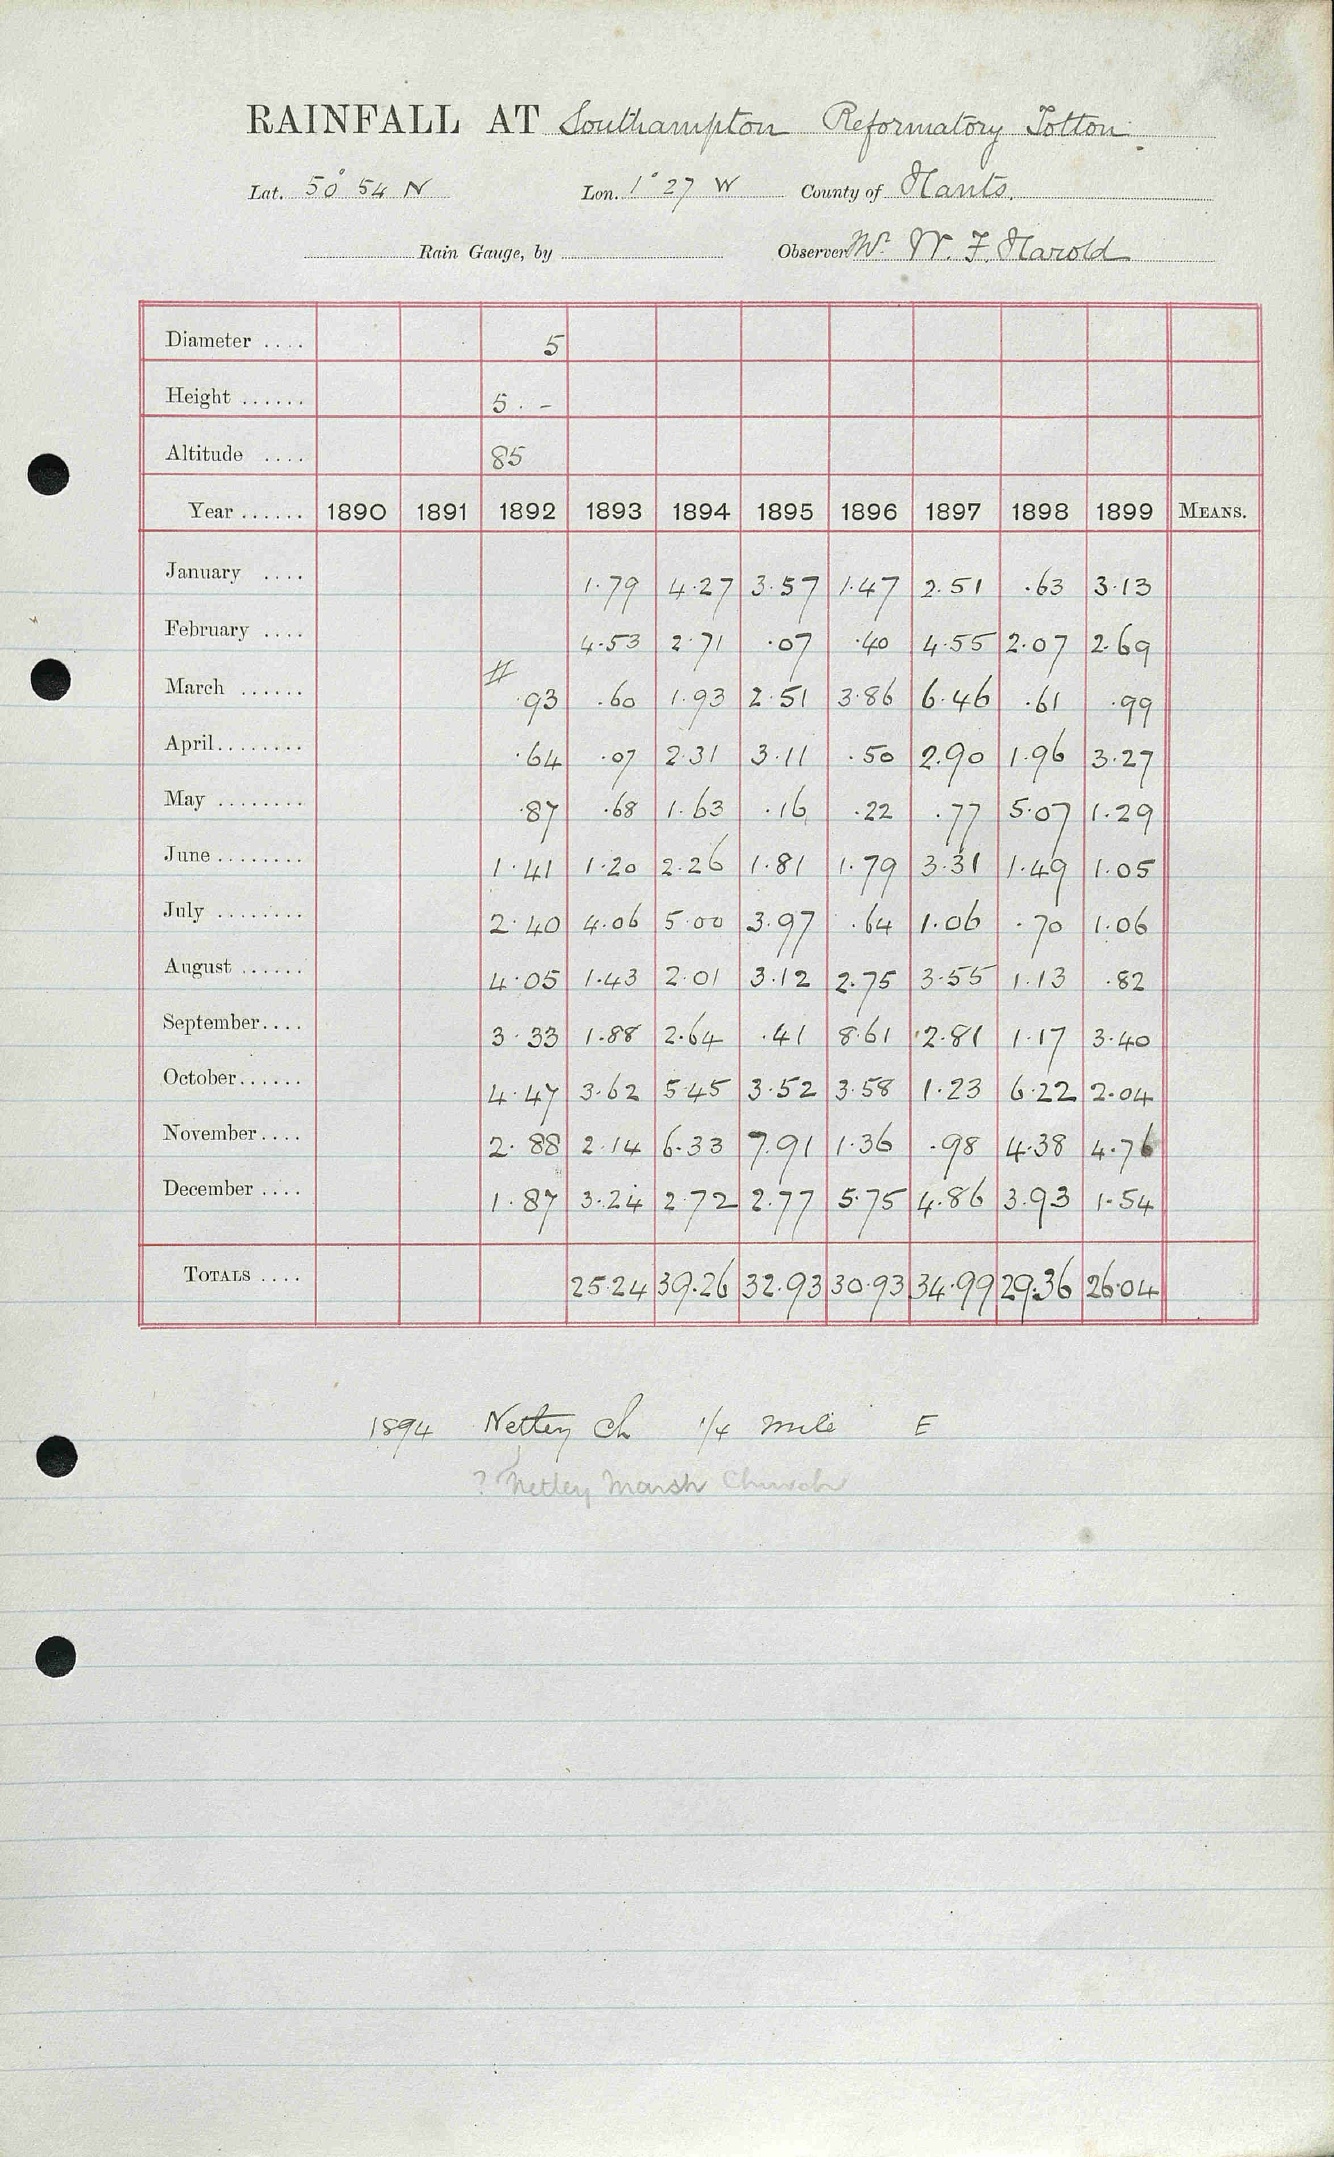 RAINFALL AT Southampton Reformatory Totton.
Lat. 50° 54 N Lon. 1° 27 W County of Hants.
Rain Gauge, by Observer Mr. W. F. Harold
Diameter .... 5
Height ...... 5 . -
Altitude .... 85
Year ...... 1890 1891 1892 1893 1894 1895 1896 1897 1898 1899 MEANS.
January .... 1.79 4.27 3.57 1.47 2.51 .63 3.13
February .... 4.53 2.71 .07 .40 4.55 2.07 2.69
March ...... # .93 .60 1.93 2.51 3.86 6.46 .61 .99
April........ .64 .07 2.31 3.11 .50 2.90 1.96 3.27
May ........ .87 .68 1.63 .16 .22 .77 5.07 1.29
June ........ 1.41 1.20 2.26 1.81 1.79 3.31 1.49 1.05
July ........ 2.40 4.06 5.00 3.97 .64 1.06 .70 1.06
August ...... 4.05 1.43 2.01 3.12 2.75 3.55 1.13 .82
September.... 3.33 1.88 2.64 .41 8.61 2.81 1.17 3.40
October...... 4.47 3.62 5.45 3.52 3.58 1.23 6.22 2.04
November.... 2.88 2.14 6.33 7.91 1.36 .98 4.38 4.76
December .... 1.87 3.24 2.72 2.77 5.75 4.86 3.93 1.54
TOTALS .... 25.24 39.26 32.93 30.93 34.99 29.36 26.04
1894 Netley Ch 1/4 mile E
? Netley Marsh Church